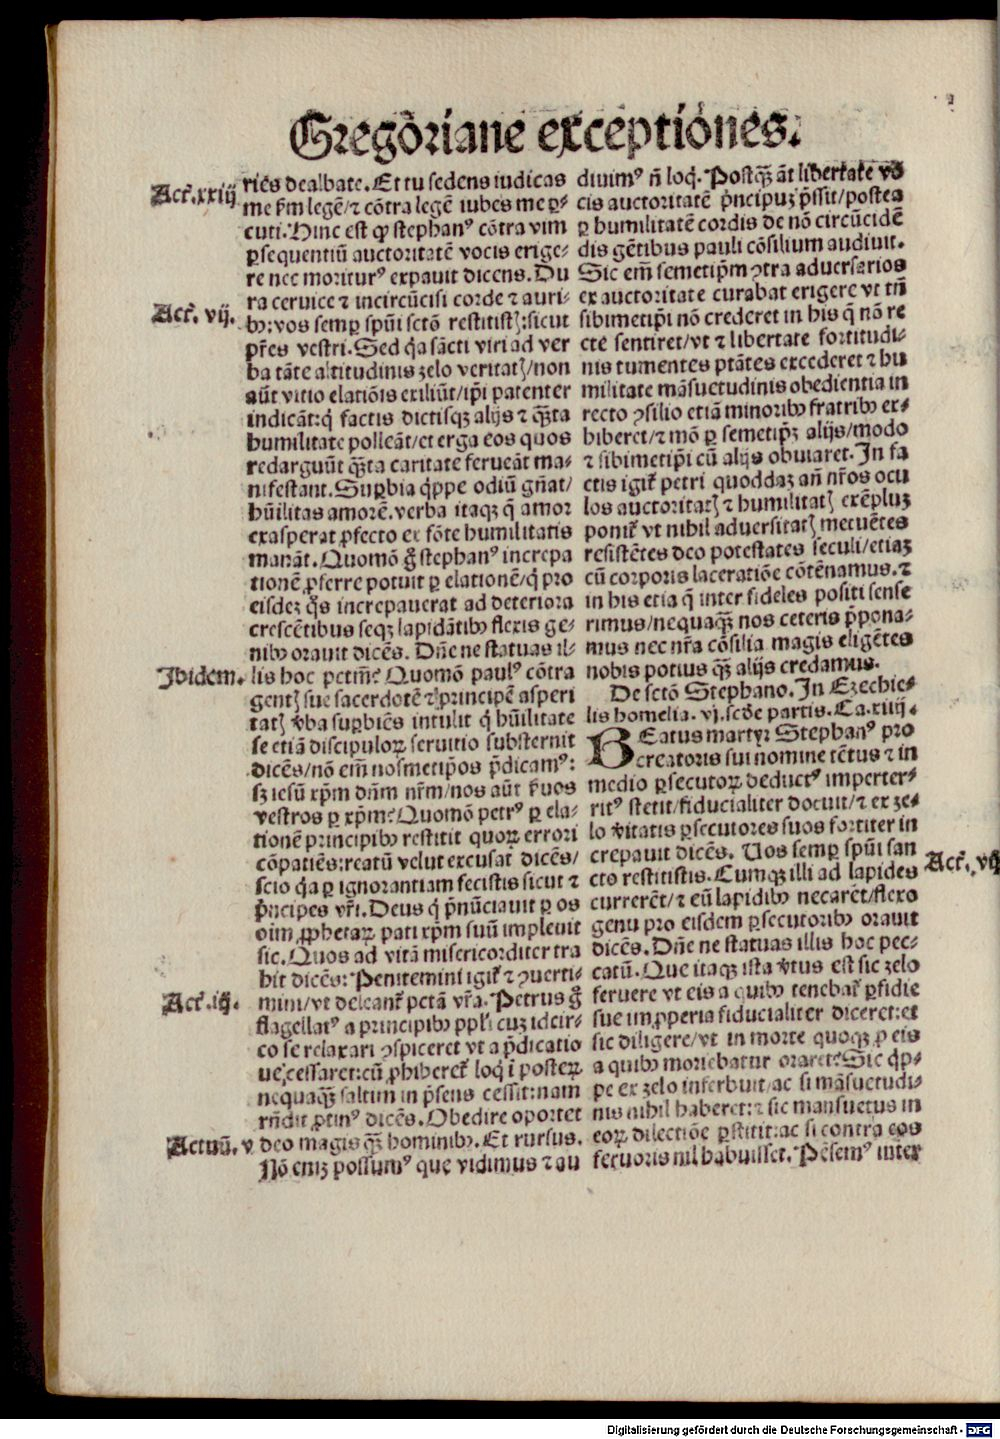 Gregõriane exceptiones.
Act̄. xxiij
ries dealbate. Et tu sedens iudicas
me ẜm legẽ/⁊ cõtra legẽ iubes me ꝑ-
cuti. Hinc est ꝙ stephanꝰ cõtra vim
ꝑsequentiũ auctoritatẽ vocis erige-
re nec moriturꝰ expauit dicens. Du
ra ceruice ⁊ incircũcisi corde ⁊ auri-
Act̄. vij.
bꝰ: vos semꝑ spũi sctõ restitistꝭ: sicut
pr̃es vestri. Sed q̇a sãcti viri ad ver
ba tãte altitudinis zelo veritatꝭ/non
aũt vitio elatiõis exiliũt/ip̃i patenter
indicãt: q̇ factis dictisqꝫ alijs ⁊ q̃ꝫta
humilitate polleãt/et erga eos quos
redarguũt q̃ꝫta caritate ferueãt ma-
nifestant. Suꝑbia q̇ppe odiũ gñat/
hũilitas amorẽ. verba itaqꝫ q̃ amor
exasperat ꝓfecto ex fõte humilitatis
manãt. Quomõ g̊ stephanꝰ increpa
tionẽ ꝓferre potuit ꝑ elationẽ/q̇ pro
eisdeꝫ q̊s increpauerat ad deteriora
crescẽtibus seqꝫ lapidãtibꝰ flexis ge-
nibꝰ orauit dicẽs. Dñe ne statuas il-
Ibidem.
lis hoc pctm̃? Quomõ paulꝰ cõtra
gentꝭ sue sacerdotẽ ⁊ principẽ asperi
tatꝭ v̾ba suꝑbiẽs intulit q̇ hũilitate
se etiã discipuloꝝ seruitio substernit
dicẽs/nõ em̃ nosmetip̃os p̃dicamꝰ:
sꝫ iesũ xp̃m dñm nr̃m/nos aũt ẜuos
vestros ꝑ xp̃m? Quomõ petrꝰ ꝑ ela-
tionẽ principibꝰ restitit quoꝝ errori
cõpatiẽs: reatũ velut excusat dicẽs/
scio q̇a ꝑ ignorantiam fecistis sicut ⁊
p̃ncipes vr̃i. Deus q̇ p̃nũciauit ꝑ os
oim̃ ꝓphetaꝝ pati xp̃m suũ impleuit
sic. Quos ad vitã misericorditer tra
hit dicẽs: Penitemini igit̃ ⁊ ꝯuerti-
Act̄. iij.
mini/vt deleant̃ pctã vr̃a. Petrus g̊
flagellatꝰ a principibꝰ ppl̃i cuꝫ idcir-
co se relaxari ꝯspiceret vt a p̃dicatio
ue cessaret: cũ ꝓhiberet̃ loq̇ i posteꝝ
nequaq̃ꝫ saltim in p̃sens cessit: nam
rñdit ꝓtinꝰ dicẽs. Obedire oportet
Actuũ. v
deo magis q̃ꝫ hominibꝰ. Et rursus.
Nõ eniꝫ possumꝰ que vidimus ⁊ au
diuimꝰ ñ loq̇. Postq̃ꝫ ãt libertate vo
cis auctoritatẽ p̃ncipuꝫ p̃ssit/postea
ꝑ humilitatẽ cordis de nõ circũcidẽ
dis gẽtibus pauli cõsilium audiuit.
Sic em̃ semetip̃m ꝯtra aduersarios
ex auctoritate curabat erigere vt tñ
sibimetip̃i nõ crederet in his q̃ nõ re
cte sentiret/vt ⁊ libertate fortitudi-
nis tumentes ptãtes excederet ⁊ hu
militate mãsuetudinis obedientia in
recto ꝯsilio etiã minoribꝰ fratribꝰ ex-
hiberet/⁊ mõ ꝑ semetip̃ꝫ alijs/modo
⁊ sibimetip̃i cũ alijs obuiaret. In fa
ctis igit̃ petri quoddaꝫ añ nr̃os ocu
los auctoritatꝭ ⁊ humilitatꝭ exẽpluꝫ
ponit̃ vt nihil aduersitatꝭ metuẽtes
resistẽtes deo potestates seculi/etiaꝫ
cũ corporis laceratiõe cõtẽnamus. ⁊
in his etia q̃ inter fideles positi sense
rimus/nequaq̃ꝫ nos ceteris p̃pona-
mus nec nr̃a cõsilia magis eligẽtes
nobis potius q̃ꝫ alijs credamus.
De sctõ Stephano. In Ezechie-
lis homelia. vj. scd̃e partis. Ca. xiiij.
BEatus martyr Stephanꝰ pro
creatoris sui nomine tẽtus ⁊ in
medio ꝑsecutoꝝ deductꝰ imperter-
ritꝰ stetit/fiducialiter docuit/⁊ ex ze-
lo v̾itatis ꝑsecutores suos fortiter in
crepauit dicẽs. Uos semꝑ spũi san
Act̄. vij
cto restitistis. Cumqꝫ illi ad lapides
currerẽt/⁊ eũ lapidibꝰ necarẽt/flexo
genu pro eisdem ꝑsecutoribꝰ orauit
dicẽs. Dñe ne statuas illis hoc pec-
catũ. Que itaqꝫ ista v̾tus est sic zelo
feruere vt eis a quibꝰ tenebat̃ ꝑfidie
sue imꝓperia fiducialiter diceret: et
sic diligere/vt in morte quoqꝫ ꝓ eis
a quibꝰ moriebatur oraret? Sic q̇p-
pe ex zelo inferbuit/ac si mãsuetudi-
nis nihil haberet: ⁊ sic mansuetus in
eoꝝ dilectiõe ꝑstitit: ac si contra eos
feruoris nil habuisset. Pẽsemꝰ inter
Digitalisierung gefördert durch die Deutsche Forschungsgemeinschaft - DFG